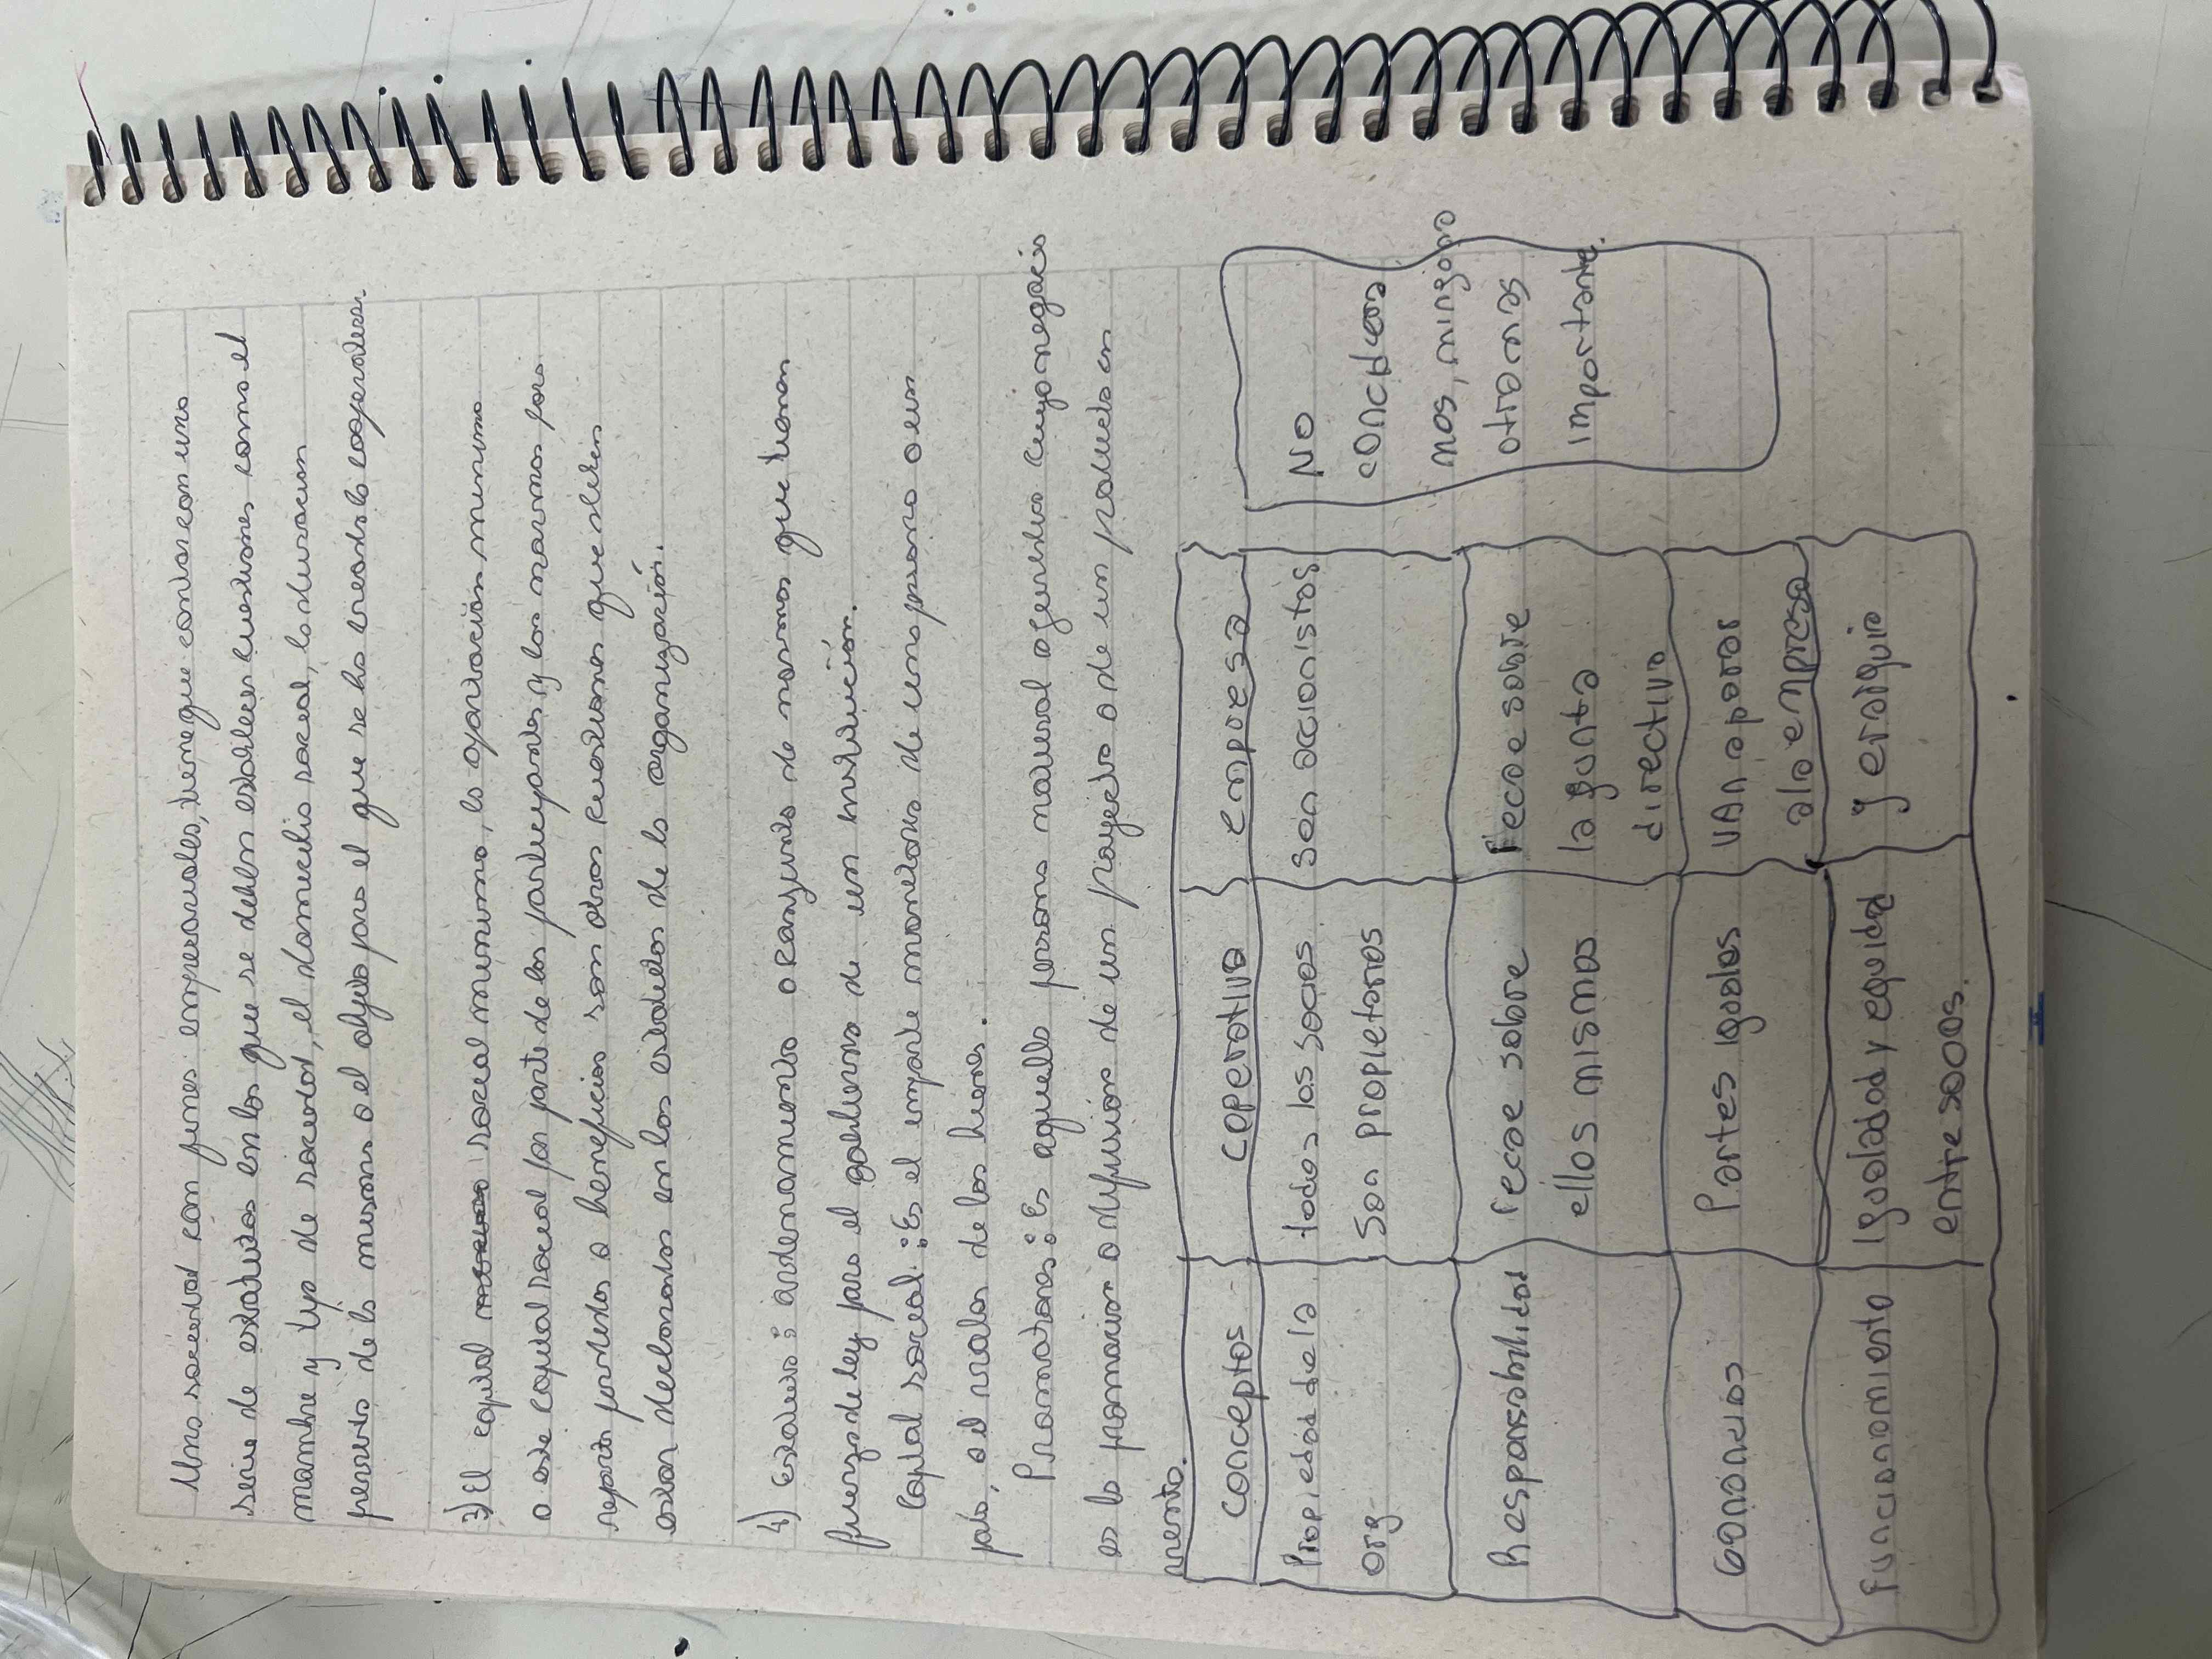 Una sociedad con fines empresariales, tiene que contar con una
serie de estatutos en los que se deben establecer cuestiones como el
nombre y tipo de sociedad, el domicilio social, la duracion
prevista de la misma o el objeto para el que se ha creado la cooperativa.
3) El capital social minimo, la aportación minima
a este capital social por parte de los participantes y las normas para
reparto perdidas o beneficios son otras cuestiones que deben
estar declaradas en los estatutos de la organización.
4) Estatuto: ordenamiento o conjunto de normas que tienen
fuerza de ley para el gobierno de una institución.
Capital social: Es el importe monetario de una persona o un
país, o el valor de los bienes.
Promotores: Es aquella persona natural o jurídica cuyo negocio
es la promocion o difusión de un proyecto o de un producto en
venta.
conceptos coperativa empresa
Propiedad de la todos los socios Sen accionistas
org- Son propietarios
Responsabilidad recae sobre recae sobre
ellos mismos la gunta
directiva
Ganancias Partes iguales VAn a parar
a la empresa
Funcionamiento Igualdad y equidad y erarquia
entre socios.
No
concidera
mos, ninguna
otra mas
importante.